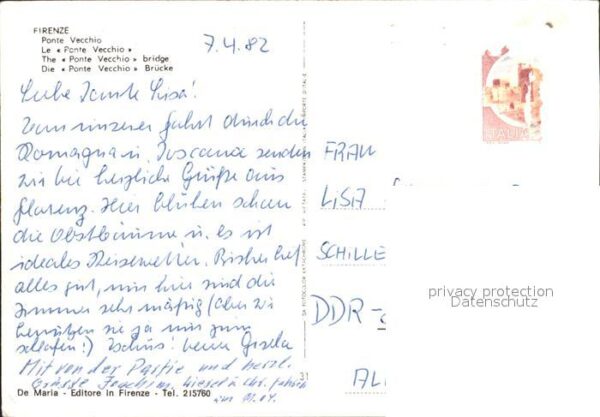 FIRENZE
Ponte Vecchio
Le « Ponte Vecchio »
The « Ponte Vecchio » bridge
Die « Ponte Vecchio » Brücke
7.4.82
Liebe Tante Lisa!
Von unserer Fahrt durch die
Romagna u. Toscana senden
wir herzliche Grüße aus
Florenz. Hier blühen schon
die Obstbäume u. es ist
ideales Reisewetter. Bisher lief
alles gut, nur hier sind die
Zimmer sehr mäßig (aber wir
benützen sie ja nur zum
schlafen!) Tschüs! Deine Gisela
Mit von der Partie und herzl.
Grüsse Joachim,
De Maria - Editore in Firenze - Tel. 215760
31
ITALIA
FRAU
LISA
SCHILLE
DDR-
AL
privacy protection
Datenschutz